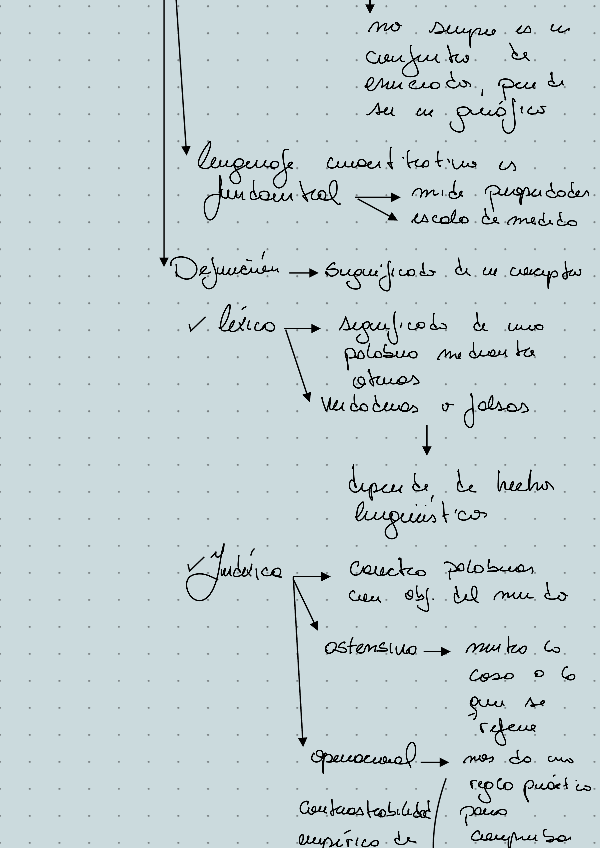 no siempre es un
conjunto de
enunciados, puede
ser un gráfico
lenguaje cuantitativo es
fundamental → mide propiedades
escala de medida
Definición → significado de un concepto
✓ léxica → significado de una
palabra mediante
otras
verdaderas o falsas
depende de hechos
lingüísticos
✓ Indéxica → conecta palabras
con obj. del mundo
ostensiva → muestra la
cosa a la
que se
refiere
operacional → nos da una
regla práctica
contrastabilidad para
empírica de comprobar